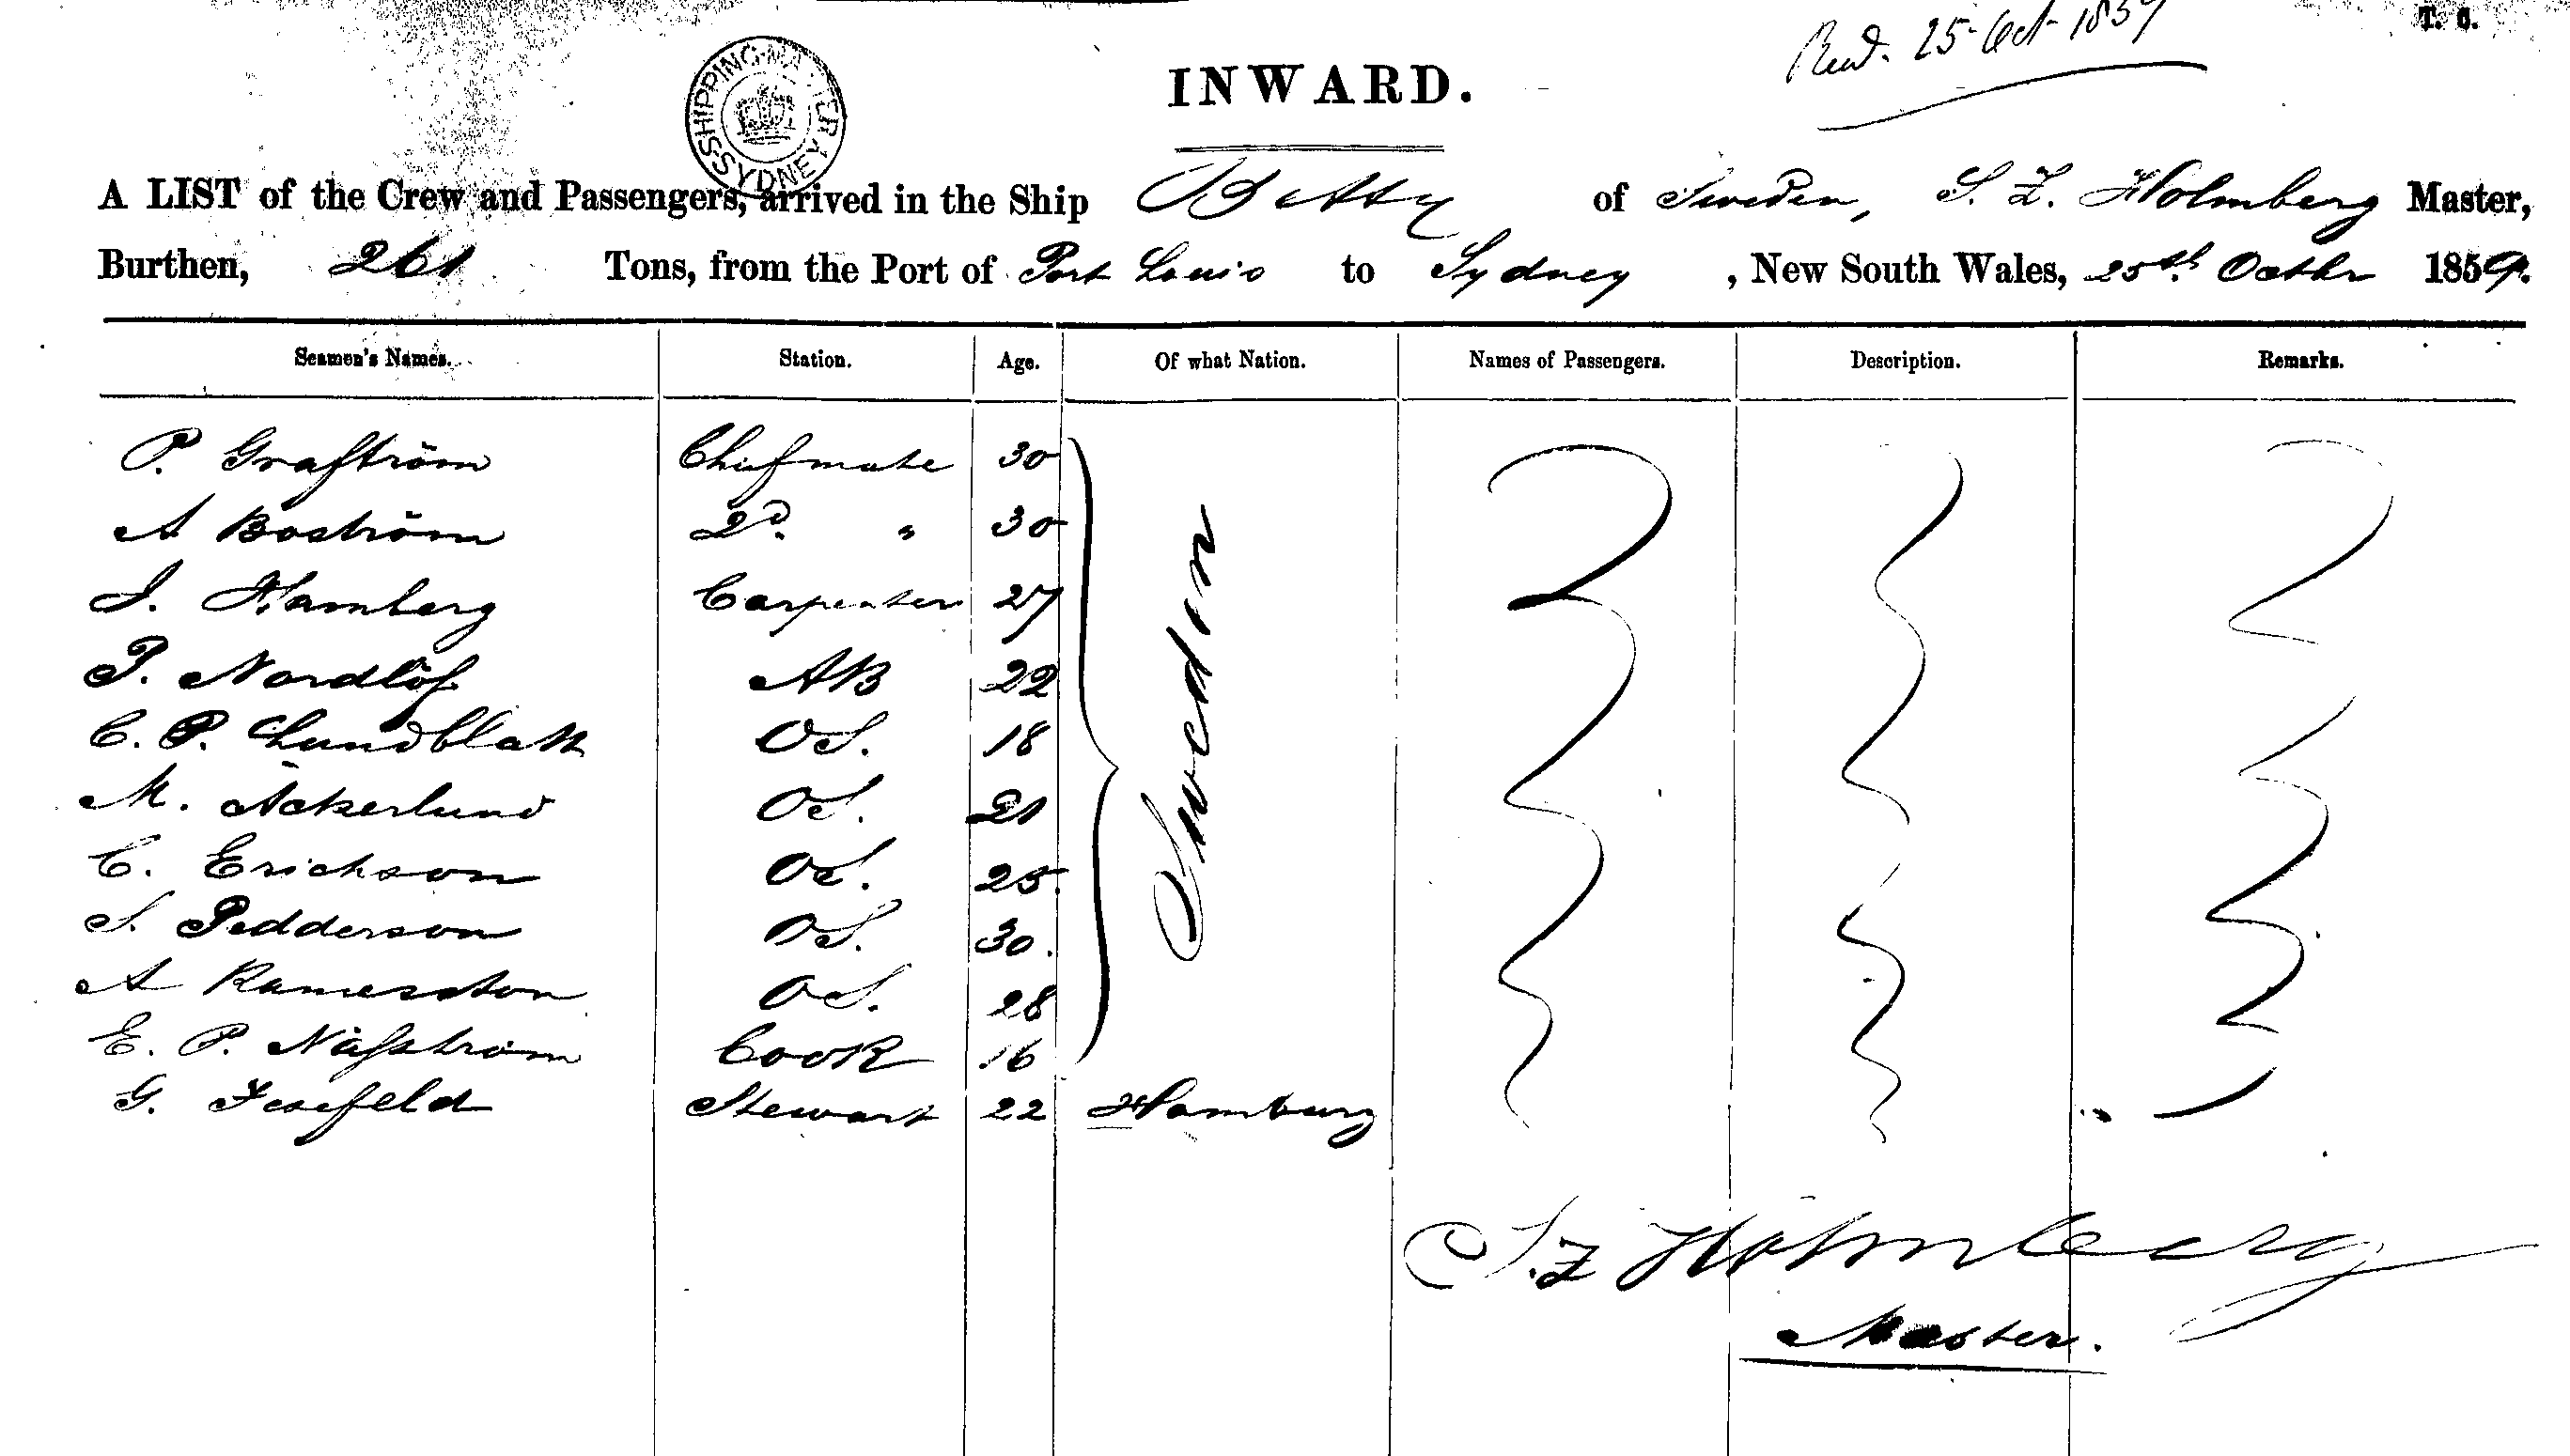 Recd. 25 Oct 1859
T. C.
SHIPPING MASTER SYDNEY
INWARD.
A LIST of the Crew and Passengers, arrived in the Ship Betty of Sweden, S. Z. Holmberg Master,
Burthen, 261 Tons, from the Port of Port Louis to Sydney, New South Wales, 25th. Octbr 1859.
Seamen's Names. Station. Age. Of what Nation. Names of Passengers. Description. Remarks.
P. Grafström Chifmate 30 Sweden
A Boström 2d. " 30
J. Hamberg Carpenter 27
P. Nordlöf AB 22
C. P. Lundblatt OS. 18
M. Åckerlund OS. 21
C. Erichson OS. 25.
S. Pedderson OS. 30.
A OS. 28
E. P. Näfström Cook 16
G. Stewart 22 Hamburg
S. Z Holmberg
Master.